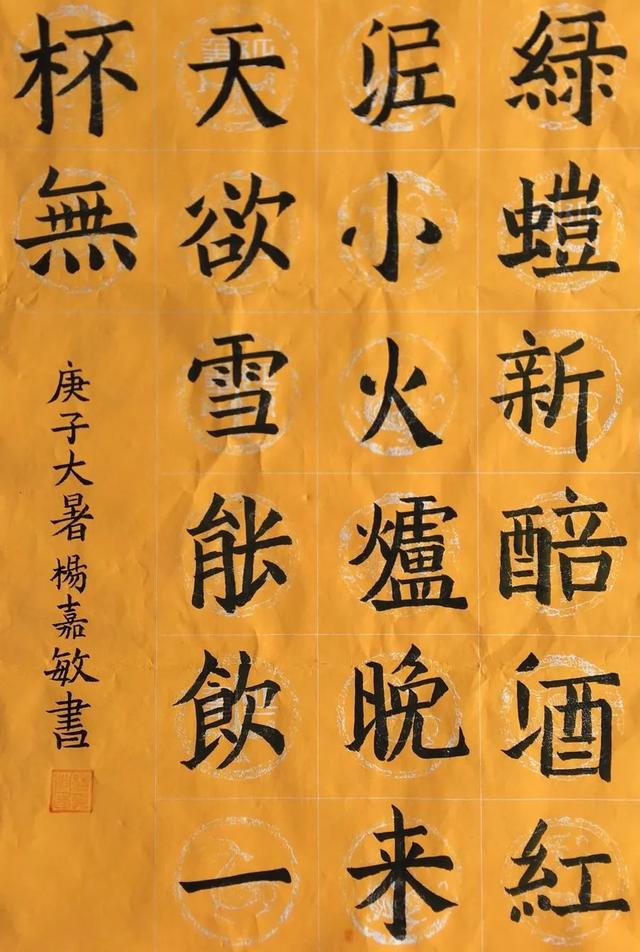 緑螘新醅酒紅
泥小火爐晚来
天欲雪能飲一
杯無
庚子大暑楊嘉敏書